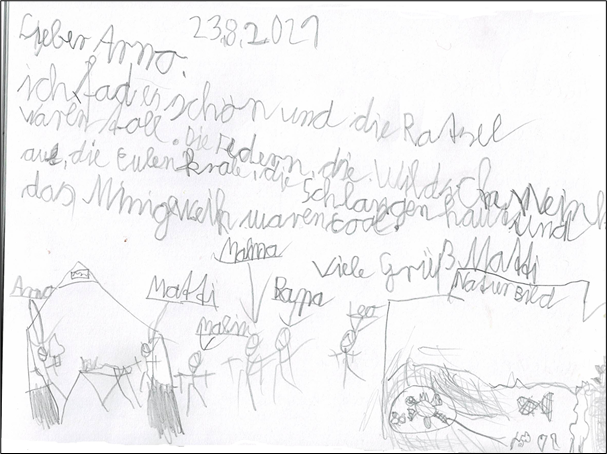 23.8.2021
Lieber Arno,
ich fad es schön und die Ratsel
waren toll. Die Federn, die Wildschwein
aut, die Eulenkrale, die Schlangenhaut und
das waren cool.
Viele Grüß Matti
Mama
Arno
Matti
Papa
Leo
Naturbild